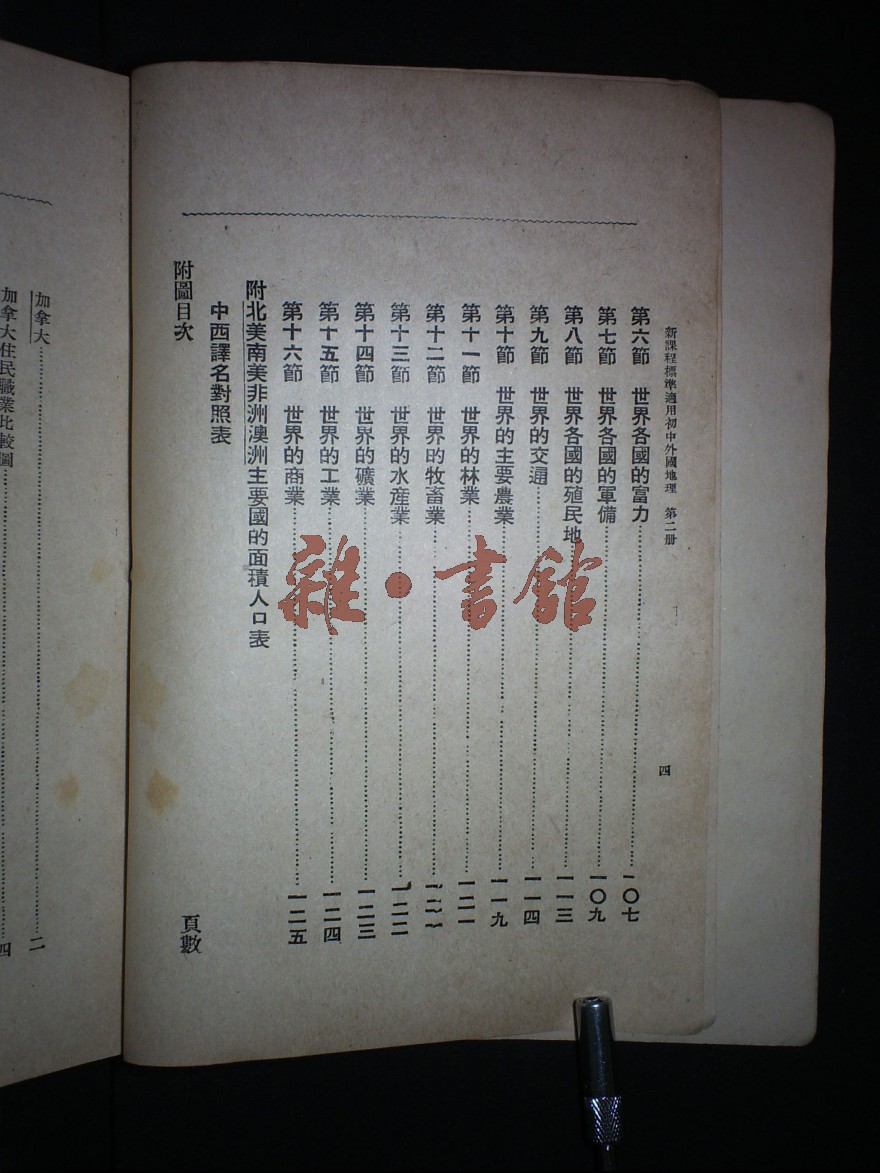 新課程標準適用初中外國地理　第二册
四
第六節　世界各國的富力……一〇七
第七節　世界各國的軍備……一〇九
第八節　世界各國的殖民地……一一三
第九節　世界的交通……一一四
第十節　世界的主要農業……一一九
第十一節　世界的林業……一二一
第十二節　世界的牧畜業……一二一
第十三節　世界的水產業……一二二
第十四節　世界的礦業……一二三
第十五節　世界的工業……一二四
第十六節　世界的商業……一二五
附北美南美非洲澳洲主要國的面積人口表
中西譯名對照表
附圖目次　頁數
加拿大……二
加拿大住民職業比較圖……四
雜·書館